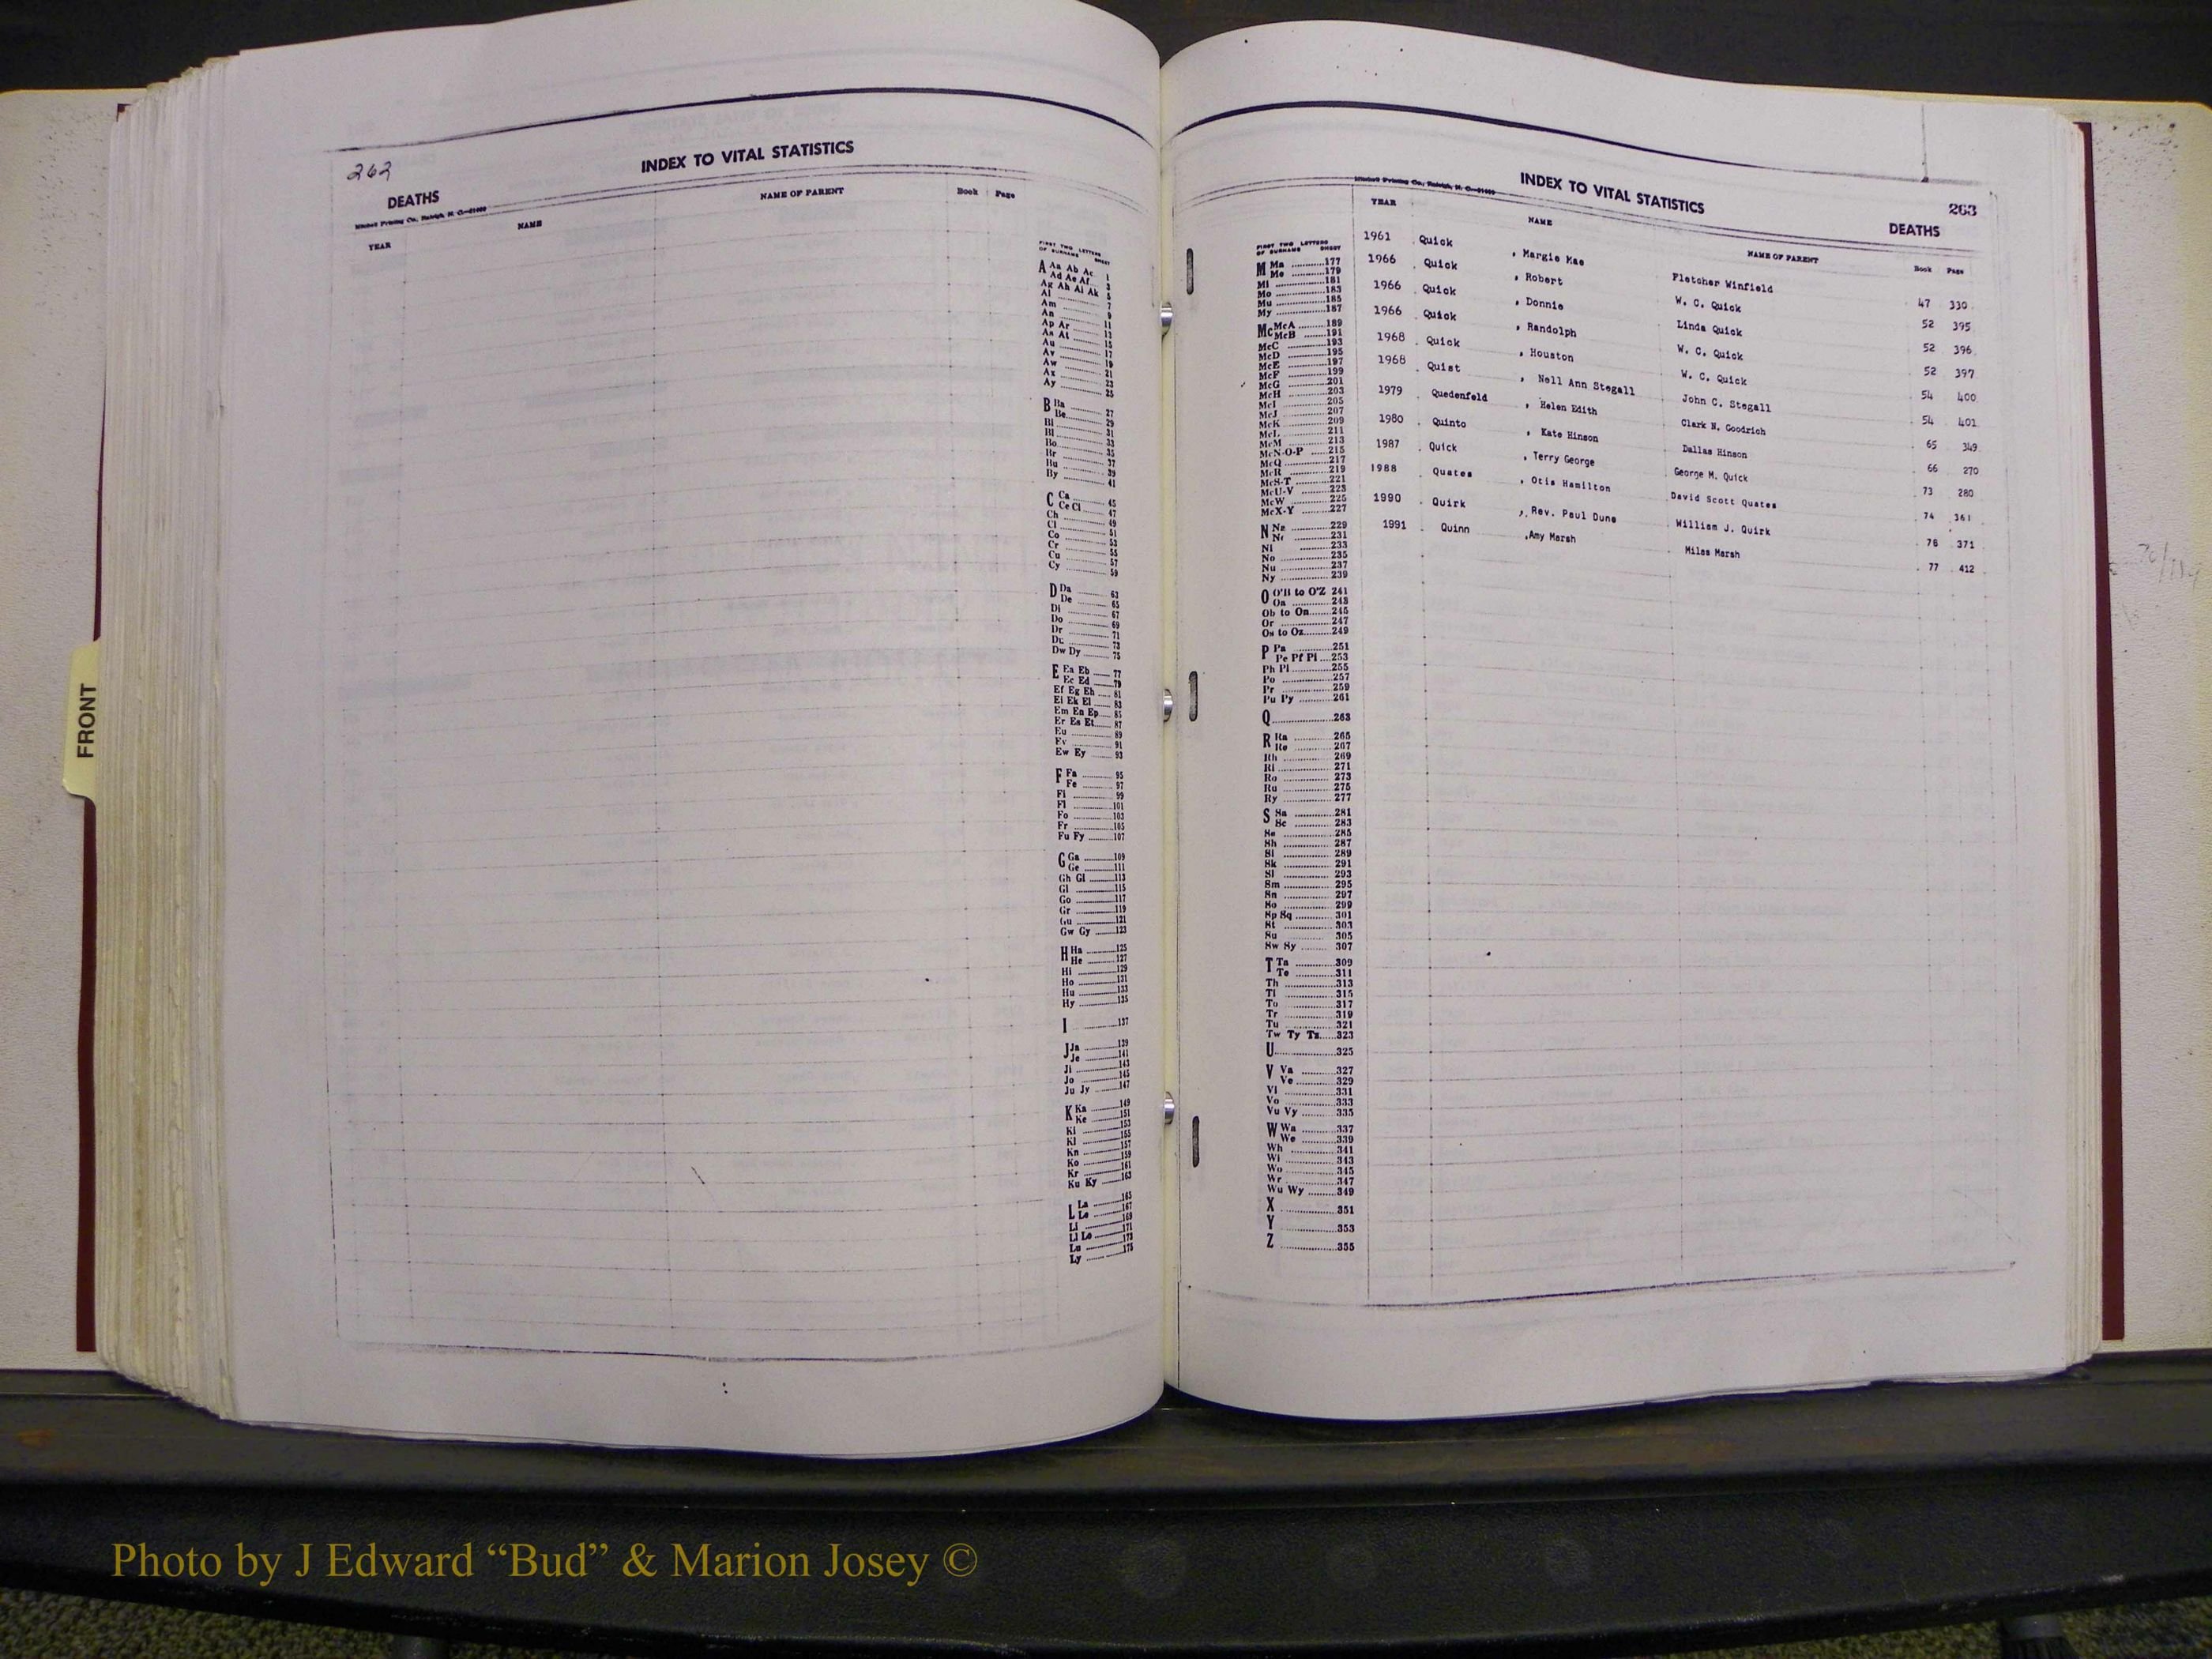 262
INDEX TO VITAL STATISTICS
DEATHS
Mitchell Printing Co., Raleigh, N. C.
YEAR NAME NAME OF PARENT Book Page
FIRST TWO LETTERS OF SURNAME SHEET
A Aa Ab Ac 1
Ad Ae Af 3
Ag Ah Ai Ak 5
Al 7
Am 9
An 11
Ap Ar 13
As At 15
Au 17
Av 19
Aw 21
Ax 23
Ay 25
B Ba 27
Be 29
Bi 31
Bl 33
Bo 35
Br 37
Bu 39
By 41
C Ca 45
Ce Ci 47
Ch 49
Cl 51
Co 53
Cr 55
Cu 57
Cy 59
D Da 63
De 65
Di 67
Do 69
Dr 71
Du 73
Dw Dy 75
E Ea Eb 77
Ec Ed 79
Ef Eg Eh 81
Ei Ek El 83
Em En Ep 85
Er Es Et 87
Eu 89
Ev 91
Ew Ey 93
F Fa 95
Fe 97
Fi 99
Fl 101
Fo 103
Fr 105
Fu Fy 107
G Ga 109
Ge 111
Gh Gi 113
Gl 115
Go 117
Gr 119
Gu 121
Gw Gy 123
H Ha 125
He 127
Hi 129
Ho 131
Hu 133
Hy 135
I 137
J Ja 139
Je 141
Ji 143
Jo 145
Ju Jy 147
K Ka 149
Ke 151
Ki 153
Kl 155
Kn 157
Ko 159
Kr 161
Ku Ky 163
L La 165
Le 167
Li 169
Ll Lo 171
Lu 173
Ly 175
INDEX TO VITAL STATISTICS
263
DEATHS
Mitchell Printing Co., Raleigh, N. C.
YEAR NAME NAME OF PARENT Book Page
1961 Quick , Margie Mae Fletcher Winfield 47 330
1966 Quick , Robert W. C. Quick 52 395
1966 Quick , Donnie Linda Quick 52 396
1966 Quick , Randolph W. C. Quick 52 397
1968 Quick , Houston W. C. Quick 54 400
1968 Quist , Nell Ann Stegall John C. Stegall 54 401
1979 Quedenfeld , Helen Edith Clark N. Goodrich 65 349
1980 Quinto , Kate Hinson Dallas Hinson 66 270
1987 Quick , Terry George George M. Quick 73 280
1988 Quates , Otis Hamilton David Scott Quates 74 361
1990 Quirk , Rev. Paul Dune William J. Quirk 76 371
1991 Quinn , Amy Marsh Miles Marsh 77 412
FIRST TWO LETTERS OF SURNAME SHEET
M Ma 177
Me 179
Mi 181
Mo 183
Mu 185
My 187
Mc McA 189
McB 191
McC 193
McD 195
McE 197
McF 199
McG 201
McH 203
McI 205
McJ 207
McK 209
McL 211
McM 213
McN-O-P 215
McQ 217
McR 219
McS-T 221
McU-V 223
McW 225
McX-Y 227
N Na 229
Ne 231
Ni 233
No 235
Nu 237
Ny 239
O O'B to O'Z 241
Oa 243
Ob to On 245
Or 247
Os to Oz 249
P Pa 251
Pe Pf Pl 253
Ph Pi 255
Po 257
Pr 259
Pu Py 261
Q 263
R Ra 265
Re 267
Rh 269
Ri 271
Ro 273
Ru 275
Ry 277
S Sa 281
Sc 283
Se 285
Sh 287
Si 289
Sk 291
Sl 293
Sm 295
Sn 297
So 299
Sp Sq 301
St 303
Su 305
Sw Sy 307
T Ta 309
Te 311
Th 313
Ti 315
To 317
Tr 319
Tu 321
Tw Ty Tz 323
U 325
V Va 327
Ve 329
Vi 331
Vo 333
Vu Vy 335
W Wa 337
We 339
Wh 341
Wi 343
Wo 345
Wr 347
Wu Wy 349
X 351
Y 353
Z 355
FRONT
Photo by J Edward “Bud” & Marion Josey ©